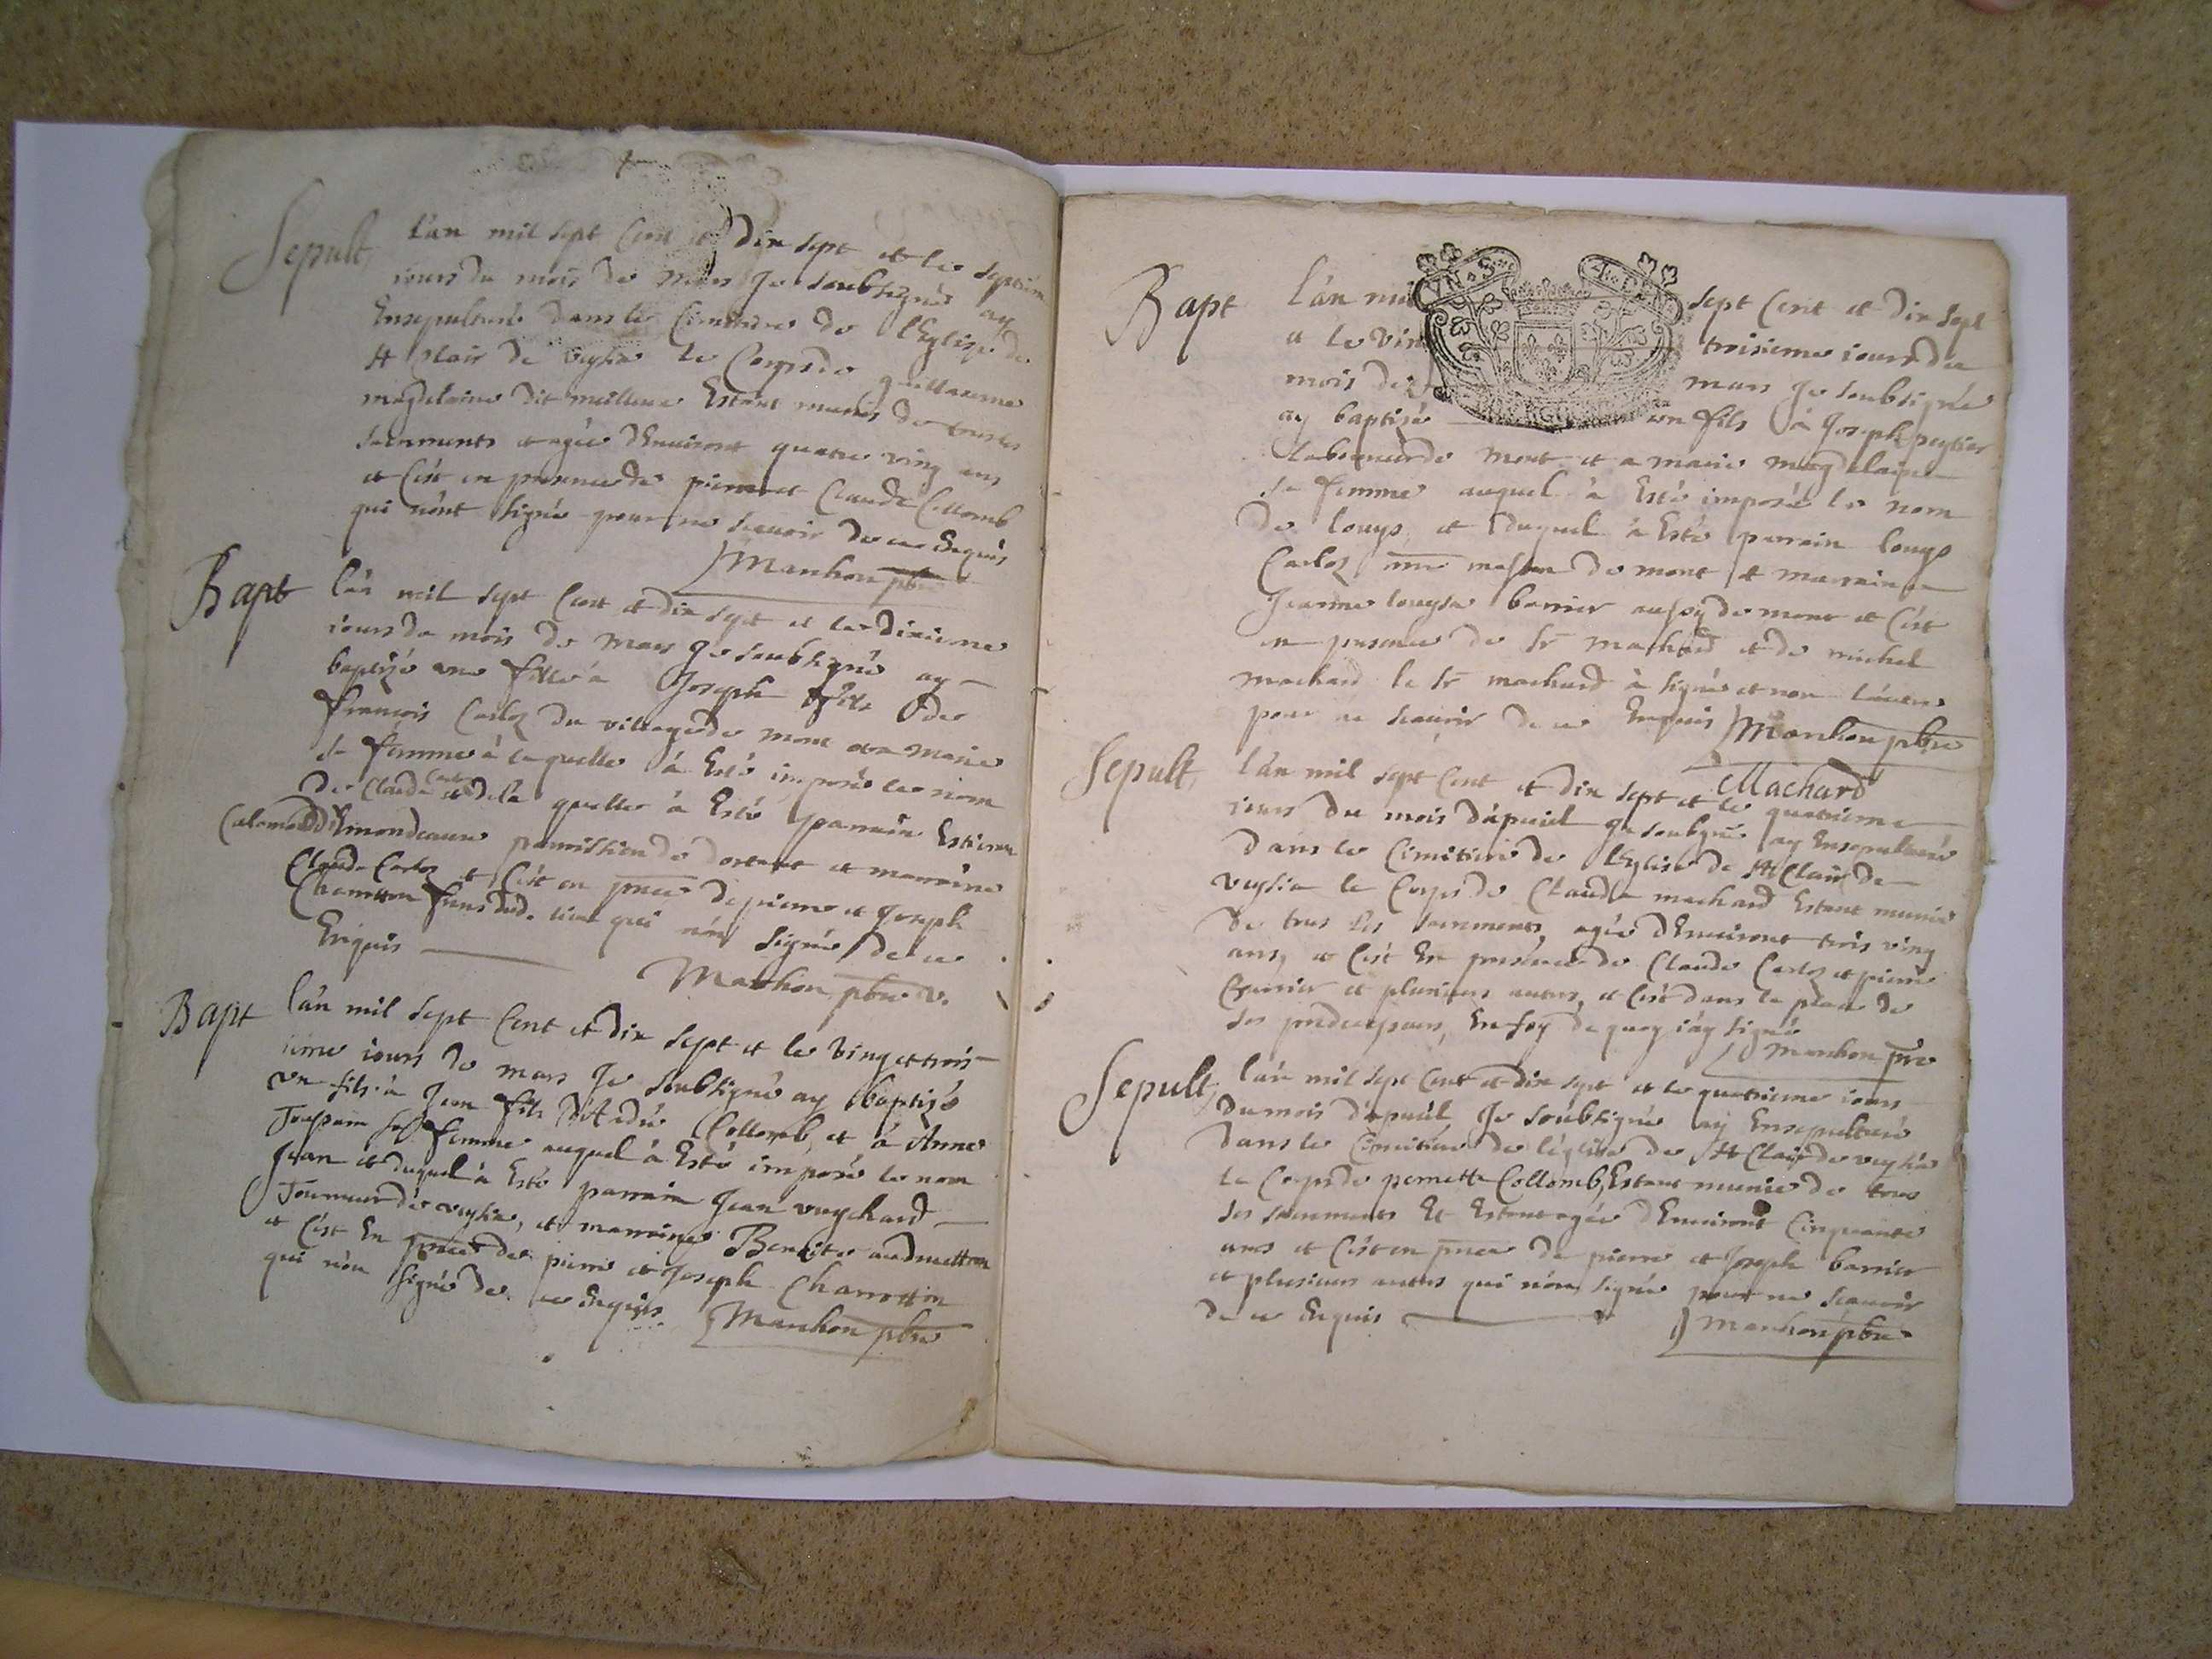 Sepult,
l'an mil sept Cent et dix sept et le septiem
iours du mois de mars Je soubsignés ay
Ensepulturé dans le Cimitiere de l'Eglise de
St Clair de veysia le Corps de guillaeme
magdelaine dit meilleur Estant munis de tous les
sacrements et agée d'Enuiront quatre ving ans
et C'est en presence de pierre et Claude Collomb
qui n'ont signé pour ne scauoir de ce Enquis
Manhon pbre
Bapt
l'an mil sept Cent et dix sept et le dixieme
iours du mois de mars Je soubsigné ay
baptizé une fille à Joseph fils de
françois Carloz du village de mont et a marie
sa femme à la quelle à Esté imposé le nom
de Claude et de la quelle à Esté parrain Estienne
permission de et marraine
Claude Carloz et C'est en pnce de pierre et Joseph
qui n'on signés de ce
Enquis
Manhon pbre v.
Bapt
l'an mil sept Cent et dix sept et le ving et trois
ieme iours de mars Je soubsigné ay baptizé
vn fils à Jean fils Collomb, et à Anne
sa femme auquel à Esté imposé le nom
Jean et duquel à Esté parrain Jean vuychard
de veysia, et marraine Benoite
et C'est En pnce de pierre et Joseph
qui n'on signé de ce Enquis
Manhon pbre
Bapt
l'an mil sept Cent et dix sept
et le vin troisieme iours du
mois de mars Je soubsigné
ay baptizé un fils à Joseph peytier
laboureur de mont et a marie magdelaine
sa femme auquel à Esté imposé le nom
de louys et duquel à Esté parrain louys
Carloz de mont et marraine
Jeanne louyse barrier aussy de mont et C'est
en presence de sr machard et de michel
machard le sr machard à signé et non l'autre
pour ne scauoir de ce Enquis Manhon pbre
Machard
Sepult,
l'an mil sept Cent et dix sept et le quatrieme
iours du mois d'apuril Je soubsigné ay Ensepulturé
dans le Cimitiere de l'Eglise de St Clair de
veysia le Corps de Claude machard Estant munie
de tous les sacrements, agée d'Enuiront trois ving
ans, et C'est En presence de Claude Carloz et pierre
et plusieurs autres, et C'est dans la place de
ses predecesseurs, En foy de quoy i'ay signé
Manhon pre
Sepult,
l'an mil sept Cent et dix sept et le quatrieme iours
du mois d'apuril Je soubsigné ay Ensepulturé
dans le Cimitiere de l'église de St Clair de veysia
le Corps de pernette Collomb, Estant munie de tous
ses sacrements Et Estant agée d'Enuiront Cinquante
ans et C'est en pnce de pierre et Joseph barrier
et plusieurs autres qui n'on signé pour ne scauoir
de ce Enquis
Manhon pbre